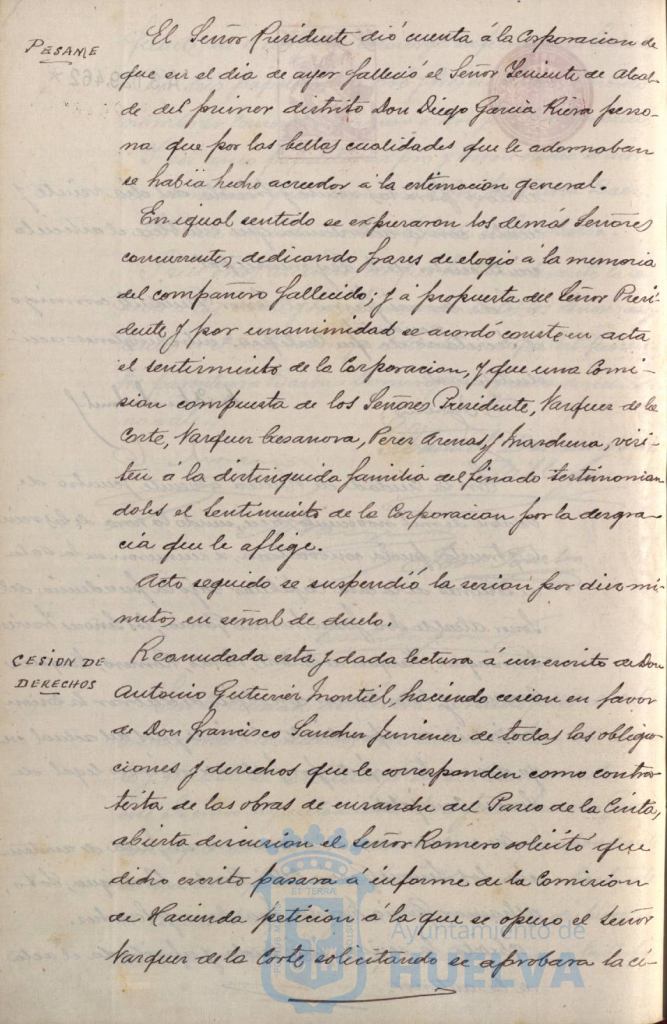 PESAME
El Señor Presidente dió cuenta á la Corporacion de
que en el dia de ayer falleció el Señor Teniente de Alcal-
de del primer distrito Don Diego Garcia Riera perso-
na que por las bellas cualidades que le adornaban
se habia hecho acreedor á la estimacion general.
En igual sentido se expresaron los demás Señores
concurrentes, dedicando frases de elogio á la memoria
del compañero fallecido; y á propuesta del Señor Presi-
dente y por unanimidad se acordó conste en acta
el sentimiento de la Corporacion, y que una Comi-
sion compuesta de los Señores Presidente, Vazquez de la
Corte, Vazquez Casanova, Perez Arenas, y Marchena, visi-
ten á la distinguida familia del finado testimonian
doles el sentimiento de la Corporacion por la desgra-
cia que le aflige.
Acto seguido se suspendió la sesion por diez mi-
nutos en señal de duelo.
CESION DE
DERECHOS
Reanudada esta y dada lectura á un escrito de Don
Antonio Gutierrez Montiel, haciendo cesion en favor
de Don Francisco Sanchez Jimenez de todas las obliga-
ciones y derechos que le corresponden como contra-
tista de las obras de ensanche del Paseo de la Cinta,
abierta discusion el Señor Romero solicitó que
dicho escrito pasara á informe de la Comision
de Hacienda peticion á la que se opuso el Señor
Vazquez de la Corte solicitando se aprobara la ce-
Ayuntamiento de
HUELVA